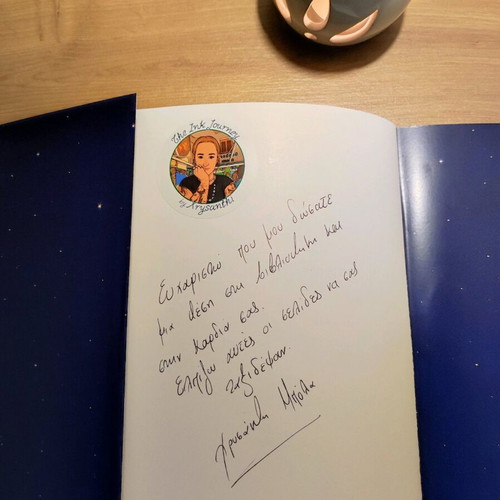 The Ink Journey
by Xrysanthi
Ευχαριστώ που μου δώσατε
μια θέση στη βιβλιοθήκη και
στην καρδιά σας.
Ελπίζω αυτές οι σελίδες να σας
ταξιδέψουν.
Χρυσάνθη Μπόλα